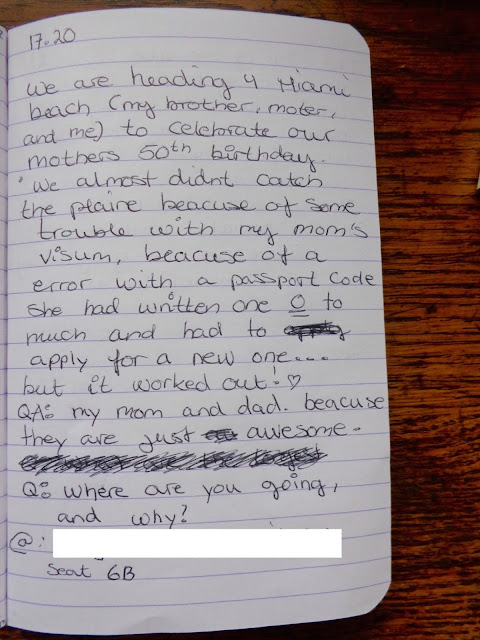 17.20
we are heading 4 Miami
beach (my brother, moter,
and me) to celebrate our
mothers 50th birthday.
we almost didnt catch
the plaire beacuse of some
trouble with my mom's
visum, beacuse of a
error with a passport code
she had written one O to
much and had to
apply for a new one....
but it worked out! ♡
QA: my mom and dad. beacuse
they are just awesome.
Q: where are you going,
and why?
@:
Seat 6B